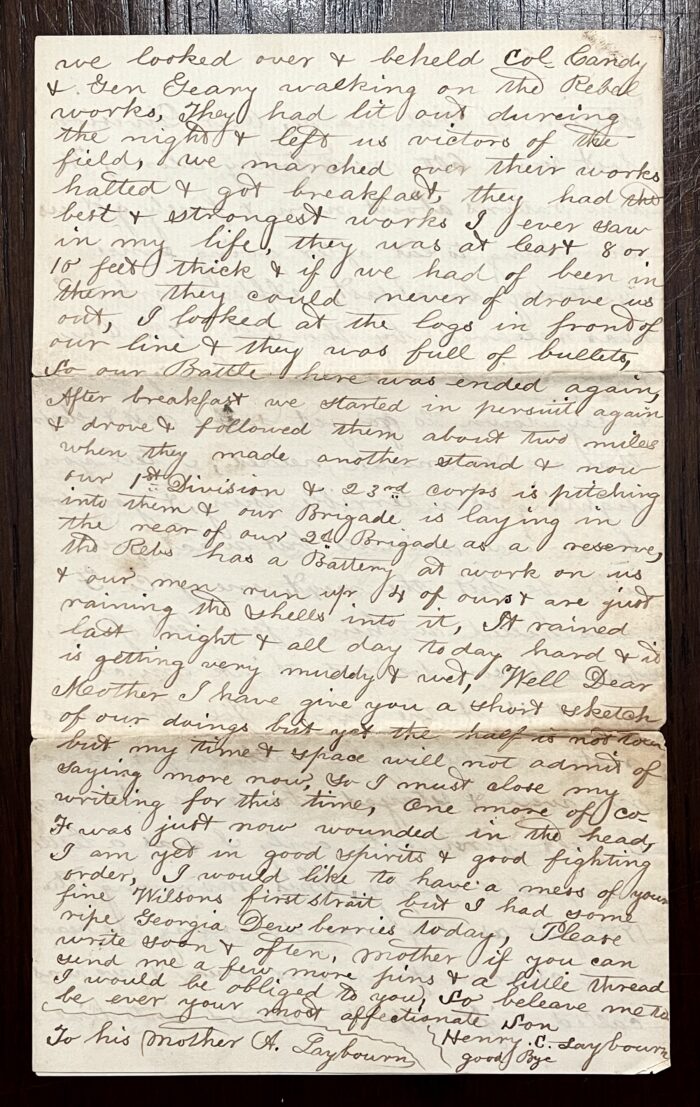 we looked over & beheld Col Candy
& Gen Geary walking on the Rebel
works, They had lit out dureing
the night & left us victors of the
field, we marched over their works
halted & got breakfast, they had the
best & strongest works I ever saw
in my life, they was at least 8 or
10 feet thick & if we had of been in
them they could never of drove us
out, I looked at the logs in front of
our line & they was full of bullets,
So our Battle here was ended again,
After breakfast we started in persuit again
& drove & followed them about two miles
when they made another stand & now
our 1st Division & 23rd corps is pitching
into them & our Brigade is laying in
the rear of our 2d Brigade as a reserve,
the Rebs has a Battery at work on us
& our men run up 4 of ours & are just
raining the shells into it, It rained
last night & all day today hard & it
is getting very muddy & wet, Well Dear
Mother I have give you a short sketch
of our doings but yet the half is not told
but my time & space will not admit of
saying more now, so I must close my
writeing for this time, One more of Co
F was just now wounded in the head,
I am yet in good spirits & good fighting
order, I would like to have a mess of your
fine Wilsons first strait but I had some
ripe Georgia Dew berries today, Please
write soon & often, mother if you can
send me a few more pins & a little thread
I would be obliged to you, So beleave me to
be ever your most affectionate Son
Henry. C. Laybourn
To his Mother A. Laybourn
good Bye